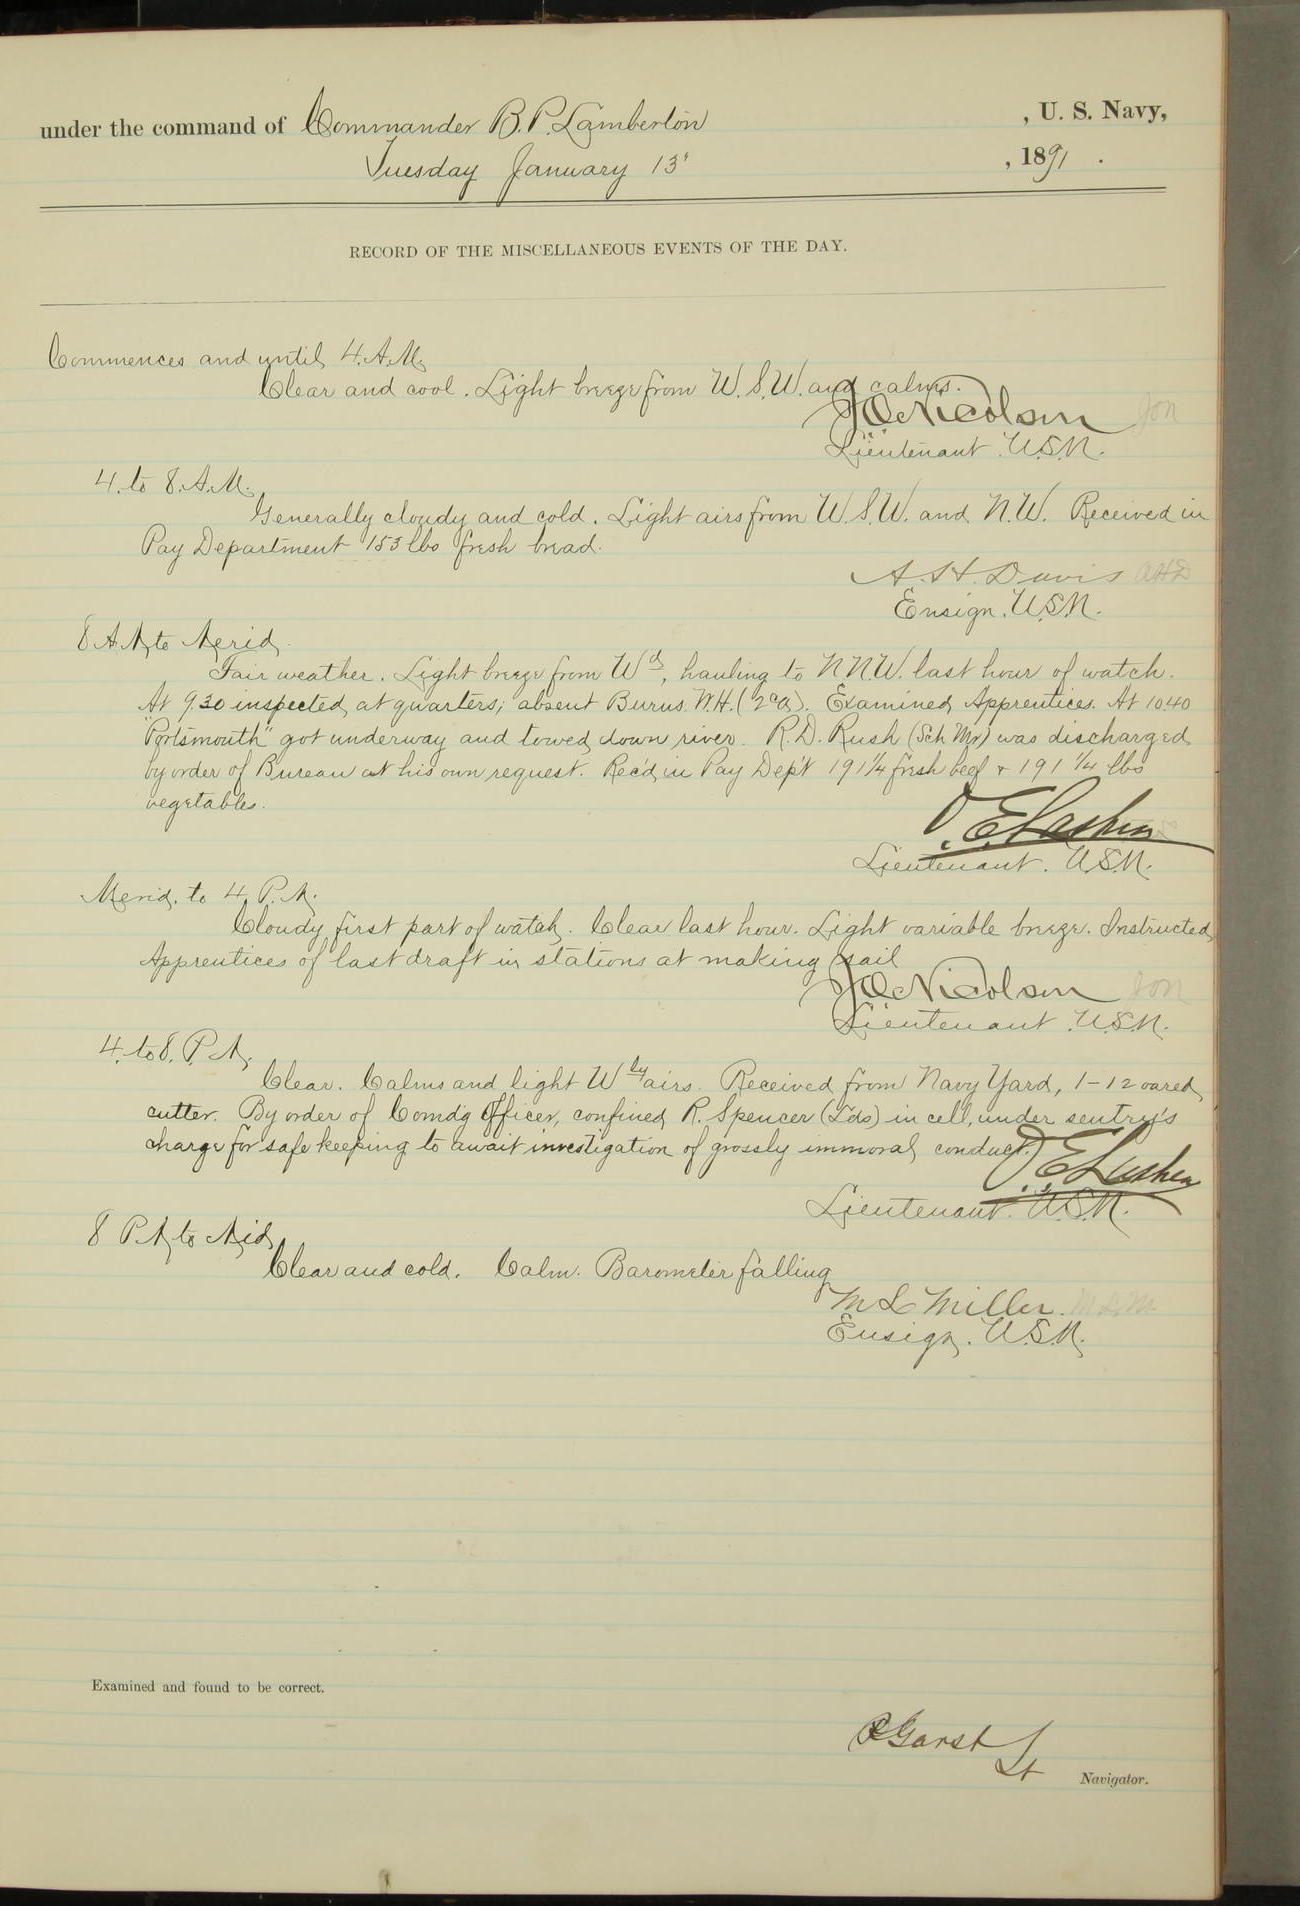 under the command of Commander B. P. Lamberton , U. S. Navy,
Tuesday January 13" , 1891 .
RECORD OF THE MISCELLANEOUS EVENTS OF THE DAY.
Commences and until 4. A.M.
Clear and cool. Light breeze from W.S.W. and calms.
J O Nicolson Jon
Lieutenant. U.S.N.
4. to 8. A.M.
Generally cloudy and cold. Light airs from W.S.W. and N.W. Received in
Pay Department 153 lbs fresh bread.
A. H. Davis AHD
Ensign. U.S.N.
8 A.M. to Merid.
Fair weather. Light breeze from Wd, hauling to N.N.W. last hour of watch.
At 9.30 inspected at quarters; absent Burns. W.H. (2ca). Examined Apprentices. At 10.40
"Portsmouth" got underway and towed down river. R. D. Rush (Sch. Mr) was discharged
by order of Bureau at his own request. Rec'd in Pay Dep't 191 1/4 fresh beef & 191 1/4 lbs
vegetables.
Lieutenant. U.S.N.
Merid. to 4. P.M.
Cloudy first part of watch. Clear last hour. Light variable breeze. Instructed
Apprentices of last draft in stations at making sail
J O Nicolson Jon
Lieutenant. U.S.N.
4. to 8. P.M.
Clear. Calms and light Wly airs. Received from Navy Yard, 1-12 oared
cutter. By order of Comd'g Officer, confined R. Spencer (Lds) in cell, under sentry's
charge for safe keeping to await investigation of grossly immoral conduct.
Lieutenant. U.S.N.
8 P.M. to Mid.
Clear and cold. Calm. Barometer falling
M L Miller. M.L.M.
Ensign. U.S.N.
Examined and found to be correct.
P Garst
Lt Navigator.